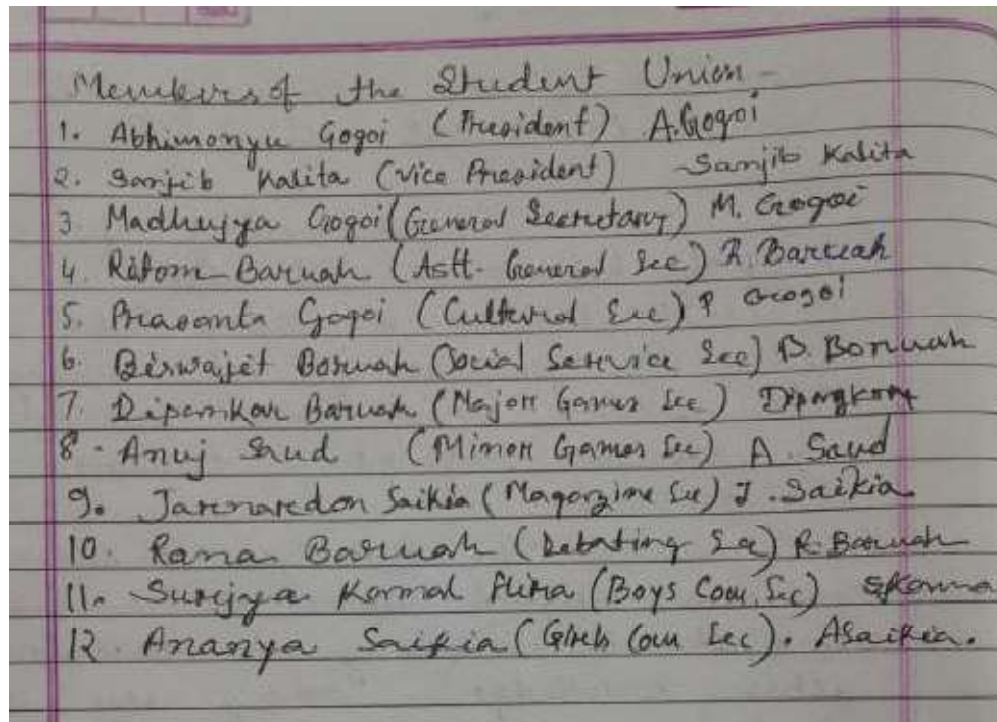 Members of the Student Union -
1. Abhimonyu Gogoi (President) A.Gogoi
2. Sanjib Kalita (Vice President) Sanjib Kalita
3 Madhujya Gogoi (General Secretary) M. Gogoi
4. Ritom Baruah (Astt. General Sec) R. Baruah
5. Prasanta Gogoi (Cultural Sec) P Gogoi
6. Biswajit Boruah (Social Service Sec) B. Boruah
7. Dipamkar Baruah (Major Games Sec) Dipangkar
8 - Anuj Saud (Minor Games Sec) A. Saud
9. Saikia (Magazine Sec) J. Saikia
10. Rama Baruah (Debating Sec) R. Baruah
11. Surjya Kormal (Boys Com Sec)
12. Ananya Saikia (Girls Com Sec). ASaikia.